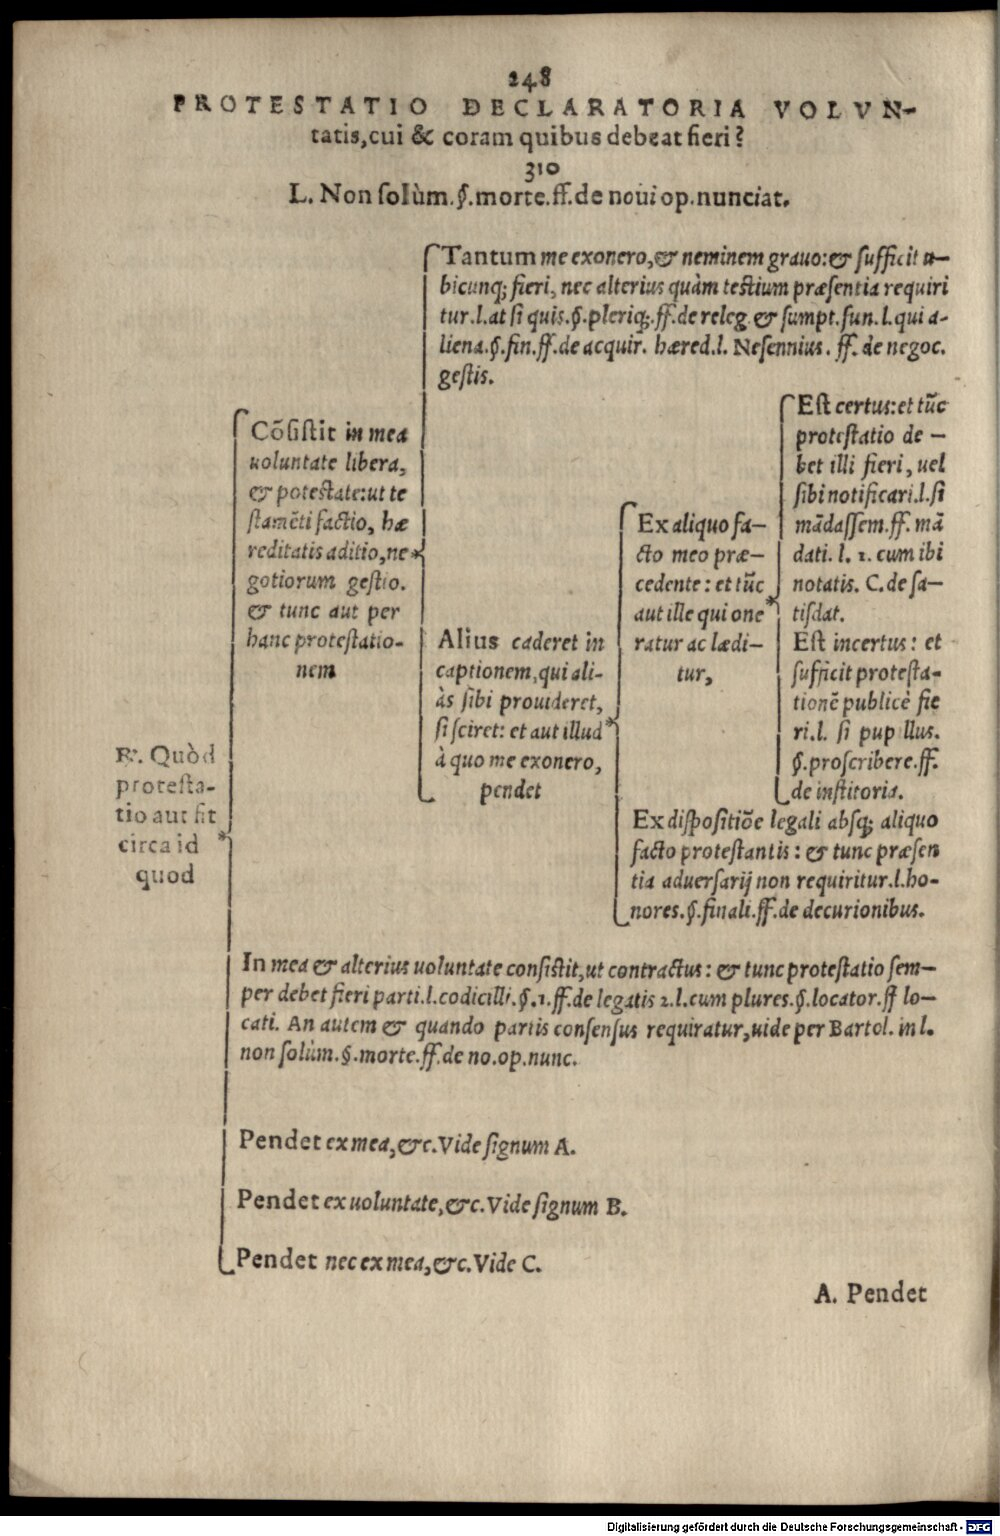 248
PROTESTATIO DECLARATORIA VOLVN-
tatis, cui & coram quibus debeat fieri?
310
L. Non solùm. §. morte. ff. de noui op. nunciat.
℟. Quòd
protesta-
tio aut fit
circa id
quod
Cõsistit in mea
uoluntate libera,
& potestate: ut te
stamẽti factio, hæ
reditatis aditio, ne
gotiorum gestio.
& tunc aut per
hanc protestatio-
nem
Tantum me exonero, & neminem grauo: & sufficit u-
bicunq; fieri, nec alterius quàm testium præsentia requiri
tur. l. at si quis. §. pleriq;. ff. de releg. & sumpt. fun. l. qui a-
liena. §. fin. ff. de acquir. hæred. l. Nesennius. ff. de negoc.
gestis.
Alius caderet in
captionem, qui ali-
às sibi prouideret,
si sciret: et aut illud
à quo me exonero,
pendet
Ex aliquo fa-
cto meo præ-
cedente: et tũc
aut ille qui one
ratur ac lædi-
tur,
Est certus: et tũc
protestatio de-
bet illi fieri, uel
sibi notificari. l. si
mãdassem. ff. mã
dati. l. 1. cum ibi
notatis. C. de sa-
tisdat.
Est incertus: et
sufficit protesta-
tionẽ publicè fie
ri. l. si pupillus.
§. proscribere. ff.
de institoria.
Ex dispositiõe legali absq; aliquo
facto protestantis: & tunc præsen
tia aduersarij non requiritur. l. ho-
nores. §. finali. ff. de decurionibus.
In mea & alterius uoluntate consistit, ut contractus: & tunc protestatio sem-
per debet fieri parti. l. codicilli. §. 1. ff. de legatis 2. l. cum plures. §. locator. ff lo-
cati. An autem & quando partis consensus requiratur, uide per Bartol. in l.
non solùm. §. morte. ff. de no. op. nunc.
Pendet ex mea, &c. Vide signum A.
Pendet ex uoluntate, &c. Vide signum B.
Pendet nec ex mea, &c. Vide C.
A. Pendet
Digitalisierung gefördert durch die Deutsche Forschungsgemeinschaft - DFG